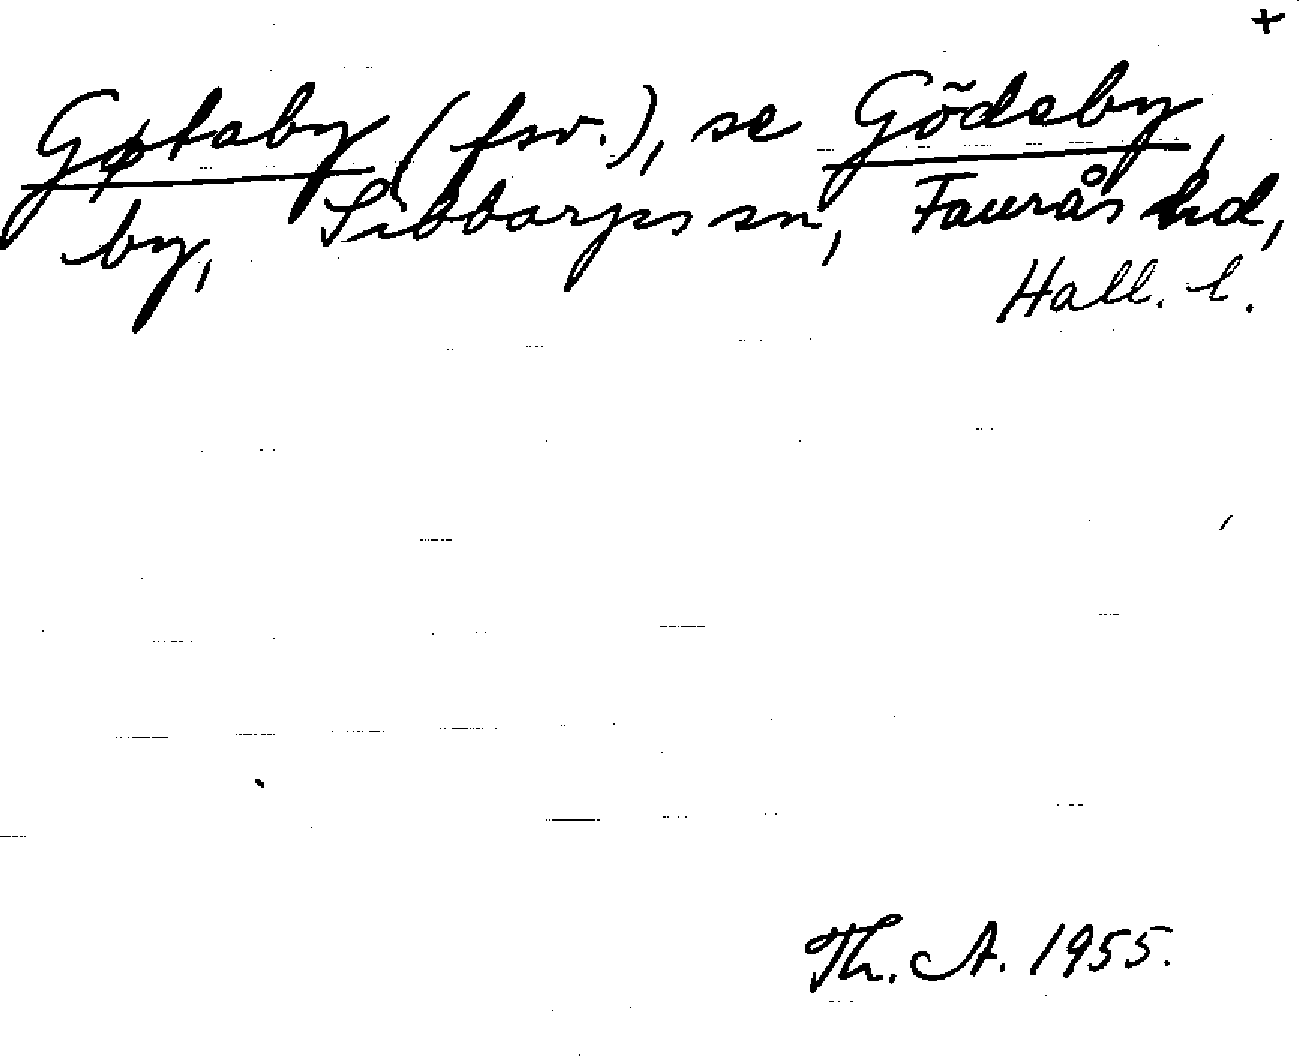 +
Gøtaby (fsv.), se Gödeby,
by, Sibbarps sn, Faurås hd,
Hall. l.
Th. A. 1955.